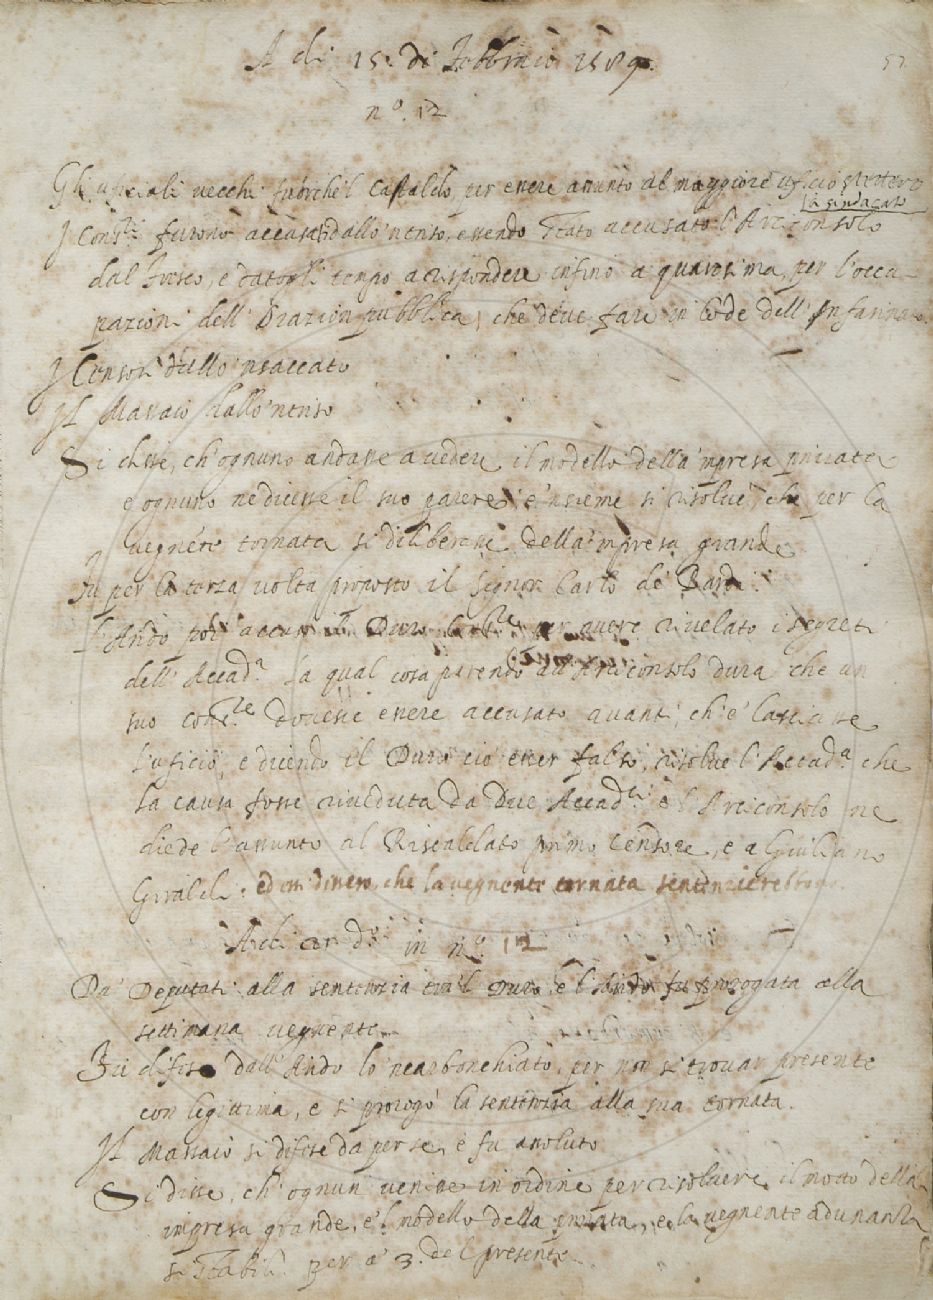 A dì 15. di Febbraio 1589.
57
n.° 12
Gli uficiali vecchi fuorche'l Castaldo, per essere assunto al maggiore uficio stettero
a sindacato
J Cons.ri furono accusati dallo'nteso, essendo stato accusato l'Arciconsolo
dal Fresco, e datogli tempo a rispondere infino a quaresima, per l'occu-
pazioni dell'Orazion pubblica, che deve fare in lode dell'Infarinato.
J Censori dallo'nsaccato
Jl Massaio dallo'nteso
Si disse, ch'ognuno andasse a vedere il modello della'mpresa privata
e ognuno ne dicesse il suo parere e'nsieme si risolvé, che per la
vegnête tornata si diliberasse della'mpresa grande
Fu per la terza volta proposto il Signor Carlo de' Bardi.
L'Arido poi accusò il Duro Cons.re per avere rivelato i segreti
dell'Accad.a La qual cosa parendo all'Arciconsolo dura che un
suo cons.re dovesse essere accusato avanti, ch'e' lasciasse
l'uficio, e dicendo il Duro ciò esser falso, risolve l'Accad.a che
la causa fosse riveduta da due Accad.ci e l'Arciconsolo ne
diede l'assunto al Riscaldato primo Censore, e a Giuliano
Giraldi: ed ordinero, che la vegnente tornata sentenzierebbono.
A dì  d.° in n.° 12
Da' Deputati alla sentenzia tra'l Duro, e l'Arido fu prorogata alla
settimana vegnente.
Fu difeso dall'Arido lo'ncarbonchiato, per non si trovar presente
con legittima, e si prorogò la sentenzia alla sua tornata.
Jl Massaio si difese da per se, e fu assoluto
Si disse, ch'ognun venisse in ordine per risolvere il motto della
impresa grande, e'l modello della privata, e la vegnente adunanza
si stabilì per a' 3. del presente